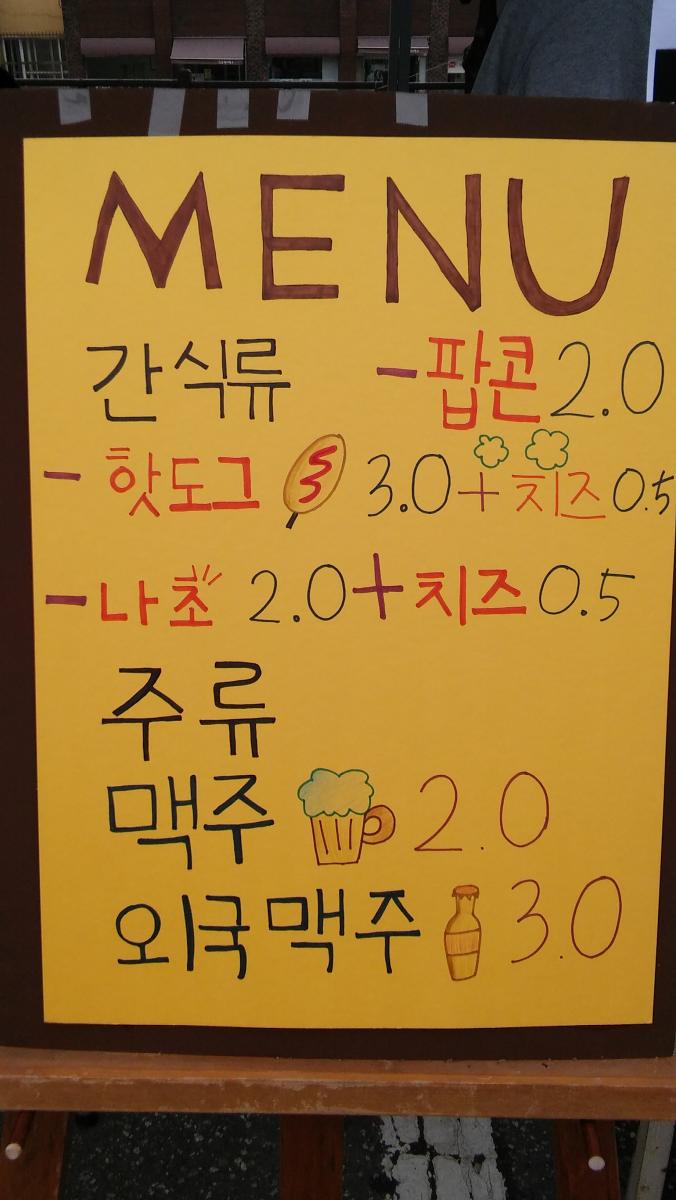 MENU
간식류 -팝콘 2.0
- 핫도그 3.0+치즈 0.5
-나쵸 2.0+치즈 0.5
주류
맥주 2.0
외국맥주 3.0